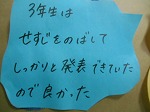 3年生は
せすじをのばして
しっかりと発表できていた
ので良かった